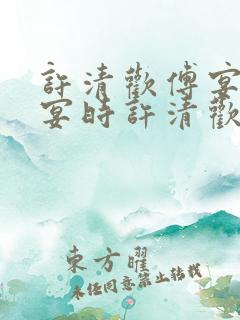 許清歡傅宴
宴時許清歡
東方曜
未經同意禁止轉載